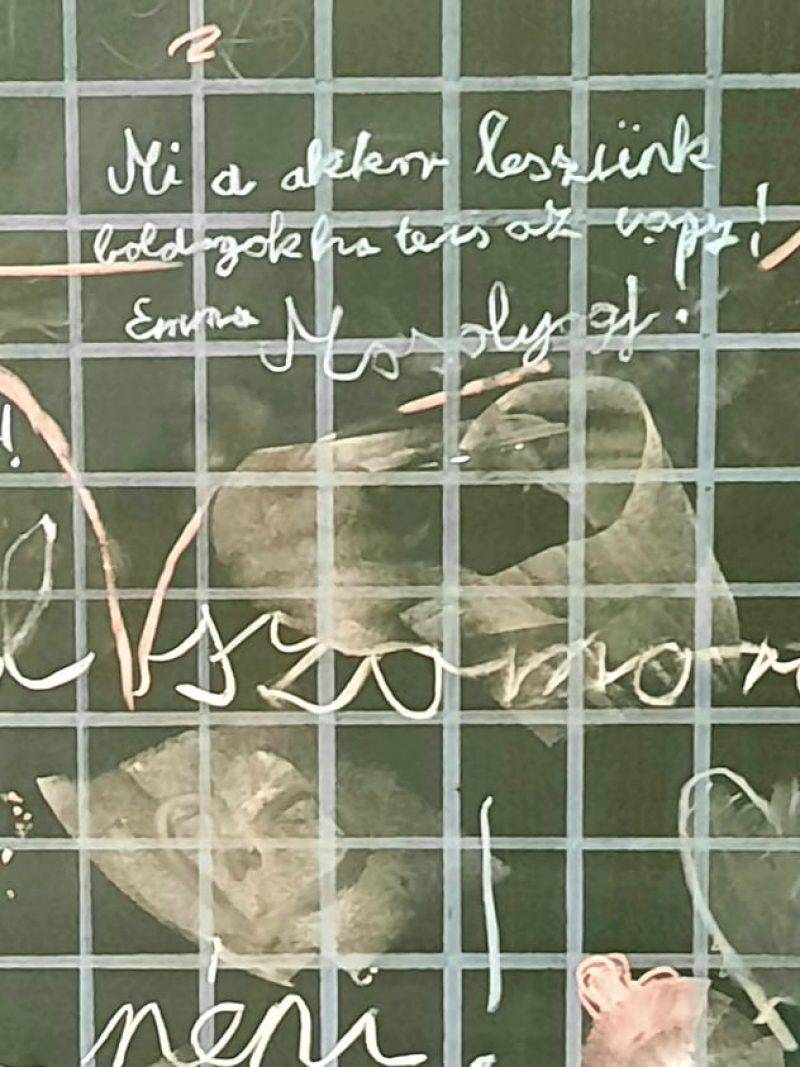 Mi a akkor leszünk
boldogok ha te is az vagy!
Emma Mosolyogj!
szomor
néni!